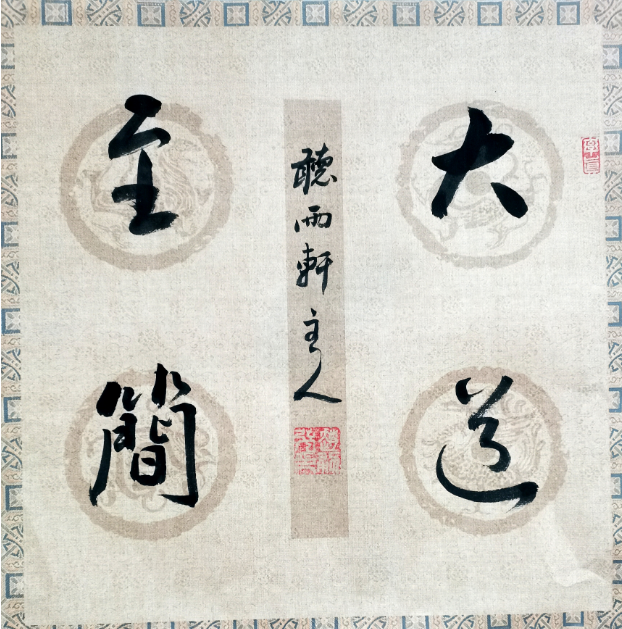 大道
至簡
聽雨軒主人